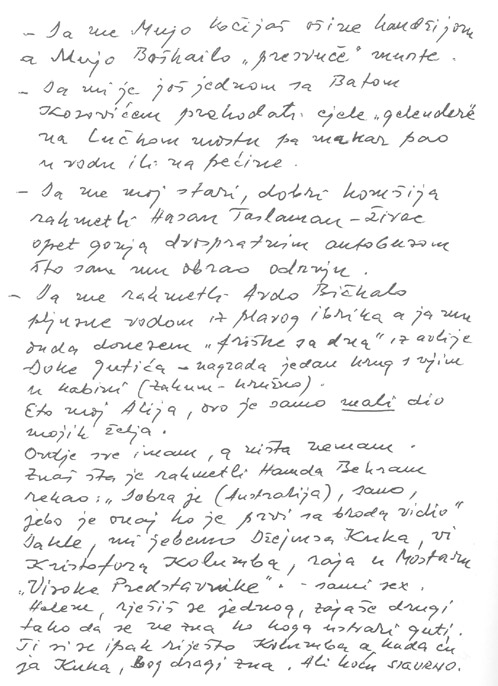 - Da me Mujo kočijaš ošine kandžijom
a Mujo Boškailo „presvuče" munte.
- Da mi je još jednom sa Batom
Kosovićem prehodati cjele „gelendere"
na Lučkom mostu pa makar pao
u vodu ili na pećine.
- Da me moj stari, dobri komšija
rahmetli Hasan Taslaman - Živac
opet gonja dvospratnim autobusom
što sam mu obrao odrinu.
- Da me rahmetli Avdo Bičkalo
pljusne vodom iz plavog ibrika a ja mu
onda donesem „friške sa dna" iz avlije
Duke Gutića - nagrada jedan krug s njim
u kabini (Zahum - Krušno).
Eto moj Alija, ovo je samo mali dio
mojih želja.
Ovdje sve imam, a ništa nemam.
Znaš šta je rahmetli Hamda Behram
rekao: „Dobra je (Australija), samo,
jebo je onaj ko je prvi sa broda vidio"
Dakle, mi jebemo Džejmsa Kuka, vi
Kristofora Kolumba, raja u Mostaru
„Visoke Predstavnike". - sami sex.
Halem, rješiš se jednog, zajaše drugi
tako da se ne zna ko koga ustvari guti.
Ti si se ipak riješio Kolumba a kada ću
ja Kuka, Bog dragi zna. Ali hoću SIGURNO.